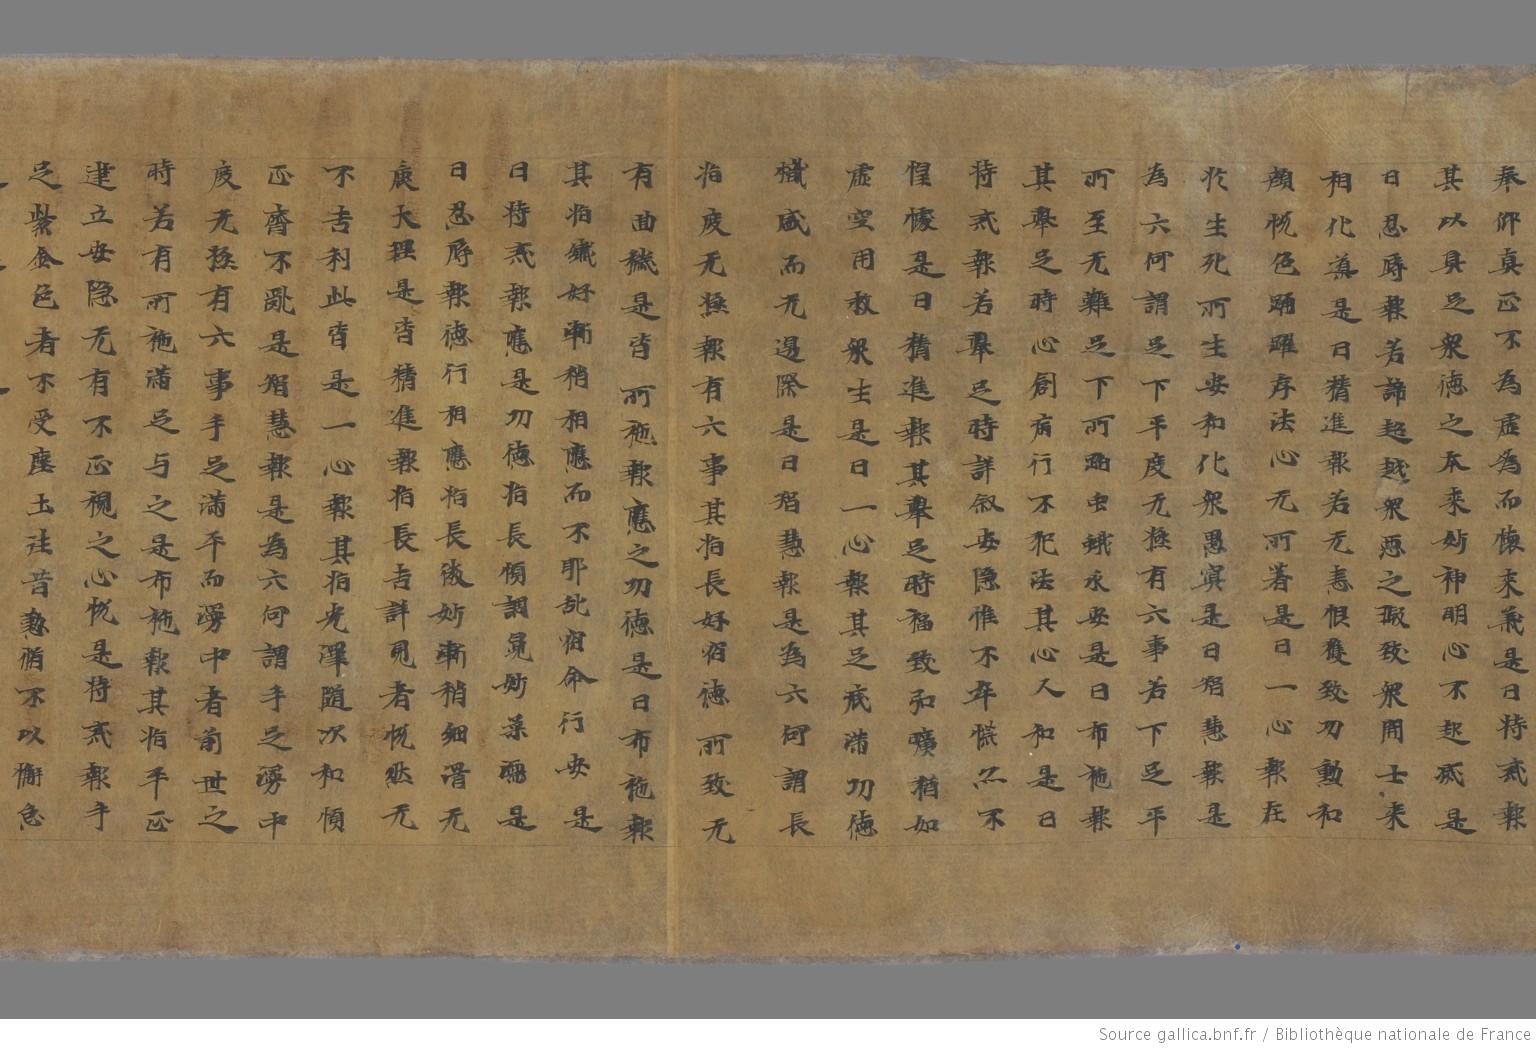 奉仰真正不為虛為而懷來義是曰持戒報
其以具足衆德之本來妙神明心不起是
曰忍辱報若諦超越衆惡之瑕致衆開士來
相化導是曰精進報若无恚恨獲致功勳和
顏悅色踊躍存法心无所著是曰一心報在
於生死所生安和化衆愚冥是曰智慧報是
為六何謂足下平度无極有六事若下足平
所至无難足下所蹈虫蛾永安是曰布施報
其舉足時心創有行不犯法其心人和是曰
持戒報若舉足時詳叙安隱惟不卒慌忽不
惶懅是曰精進報其舉足時福致弘曠猶如
虛空用救衆生是曰一心報其足底滿功德
熾盛而无邊際是曰智慧報是為六何謂長
指度无極報有六事其指長好宿德所致无
有面是皆所施報應之功德是曰布施報
其指纖好漸稍相應而不耶訛宿命行安是
曰持戒報應是功德指長順調晃妙柔濡是
曰忍辱報德行相應指長後妙漸稍細滑无
麁大理是皆精進報指長吉詳見者悅然无
不吉利此皆是一心報其指光澤隨次和順
正齊不亂是智慧報是為六何謂手足中
度无極有六事手足滿平而中者前世之
時若有所施滿足与之是布施報其指平正
建立安隱无有不正視之心悅是持戒報手
足紫金色者不受塵土往昔懃脩不以懈怠
Source gallica.bnf.fr / Bibliothèque nationale de France